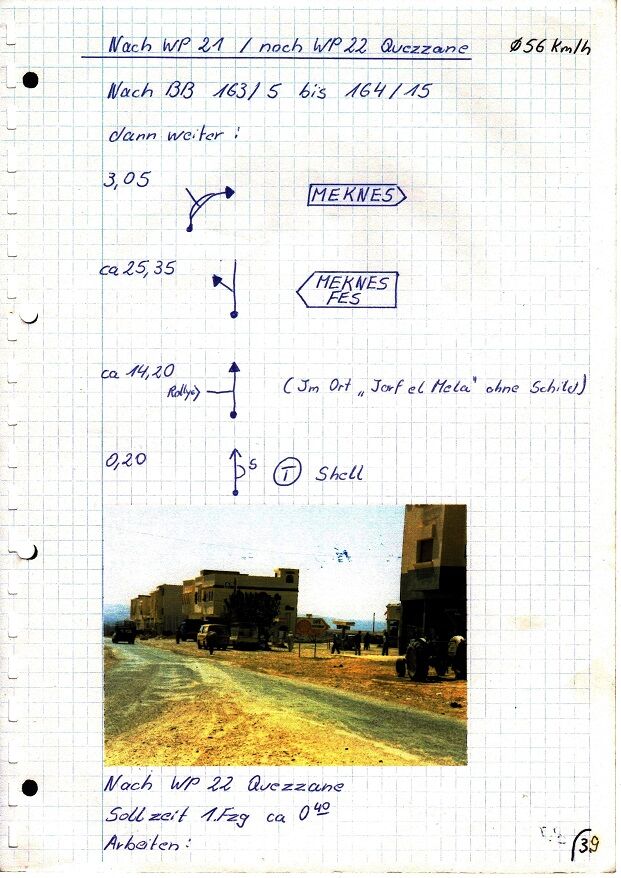 Nach WP 21 / noch WP 22 Quezzane ø 56 Km/h
Nach BB 163/5 bis 164/15
dann weiter:
3,05 MEKNES
ca 25,35 MEKNES
FES
ca 14,20
Rallye (Im Ort „Jorf el Mela" ohne Schild)
0,20 S T Shell
Nach WP 22 Quezzane
Sollzeit 1.Fzg ca 0 40
Arbeiten:
39